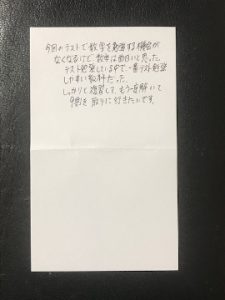 今回のテストで数学を勉強する機会が
なくなるけど数学は面白いと思った。
テスト勉強している中で一番テスト勉強
しやすい教科だった。
しっかりと復習して、もう一度解いて
9割を取りに行きたいです。